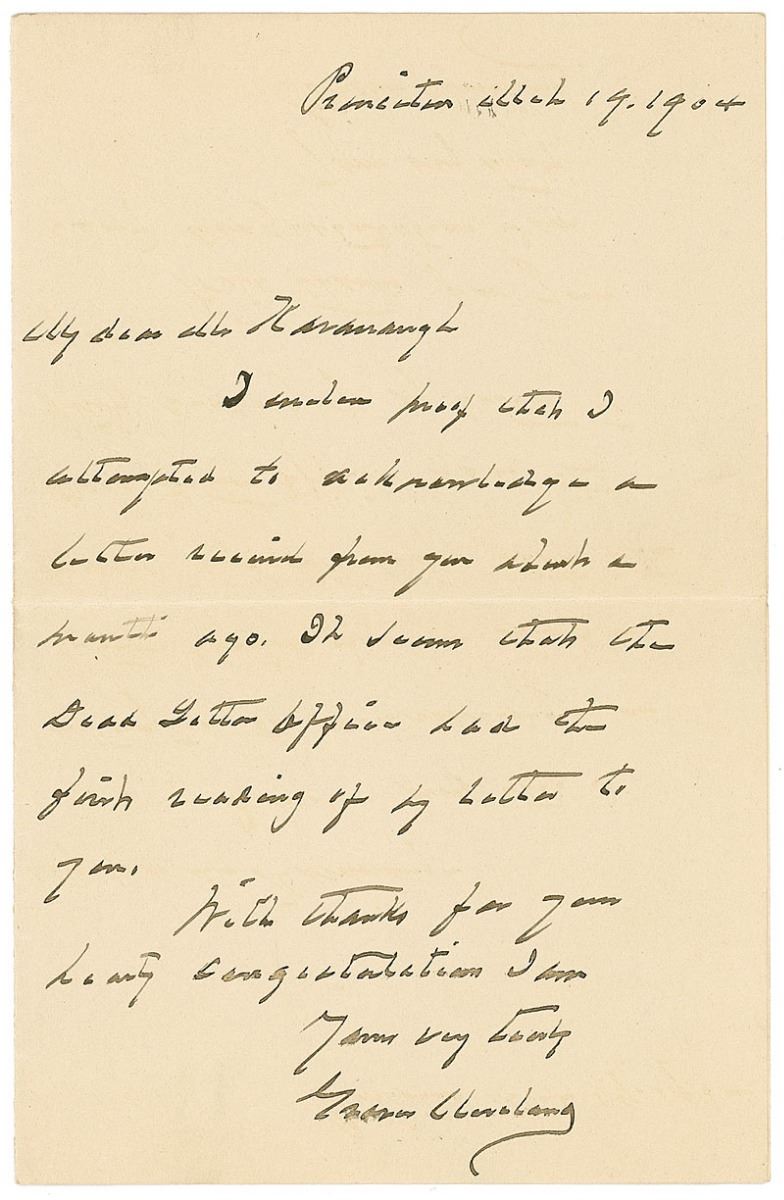 Princeton Mch 19. 1904
My dear Mr Kavanaugh
I enclose proof that I
attempted to acknowledge a
letter received from you about a
month ago. It seems that the
Dead Letter Office had the
first reading of my letter to
you.
With thanks for your
hearty congratulations I am
Yours very truly
Grover Cleveland